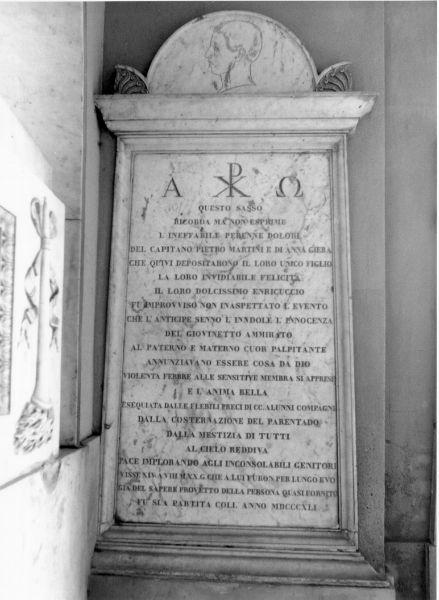 Α ☧ Ω
QUESTO SASSO
RICORDA MA NON ESPRIME
L INEFFABILE PERENNE DOLORE
DEL CAPITANO PIETRO MARTINI E DI ANNA
CHE QUIVI DEPOSITARONO IL LORO UNICO FIGLIO
LA LORO INVIDIABILE FELICITÀ
IL LORO DOLCISSIMO ENRICUCCIO
FU IMPROVVISO NON INASPETTATO L EVENTO
CHE L'ANTICIPE SENNO L INDOLE L INNOCENZA
DEL GIOVINETTO AMMIRATO
AL PATERNO E MATERNO CUOR PALPITANTE
ANNUNZIAVANO ESSERE COSA DA DIO
VIOLENTA FEBBRE ALLE SENSITIVE MEMBRA SI APPRESE
E L'ANIMA BELLA
ESEQUIATA DALLE FLEBILI PRECI DI CC. ALUNNI COMPAGNI
DALLA COSTERNAZIONE DEL PARENTADO
DALLA MESTIZIA DI TUTTI
AL CIELO REDDIVA
PACE IMPLORANDO AGLI INCONSOLABILI GENITORI
VISSE XIV A VIII M XX G CHE A LUI FURON PER LUNGO EVO
GIÀ DEL SAPERE PROVETTO DELLA PERSONA QUASI FORNITO
FU SUA PARTITA COLL ANNO MDCCCXLI